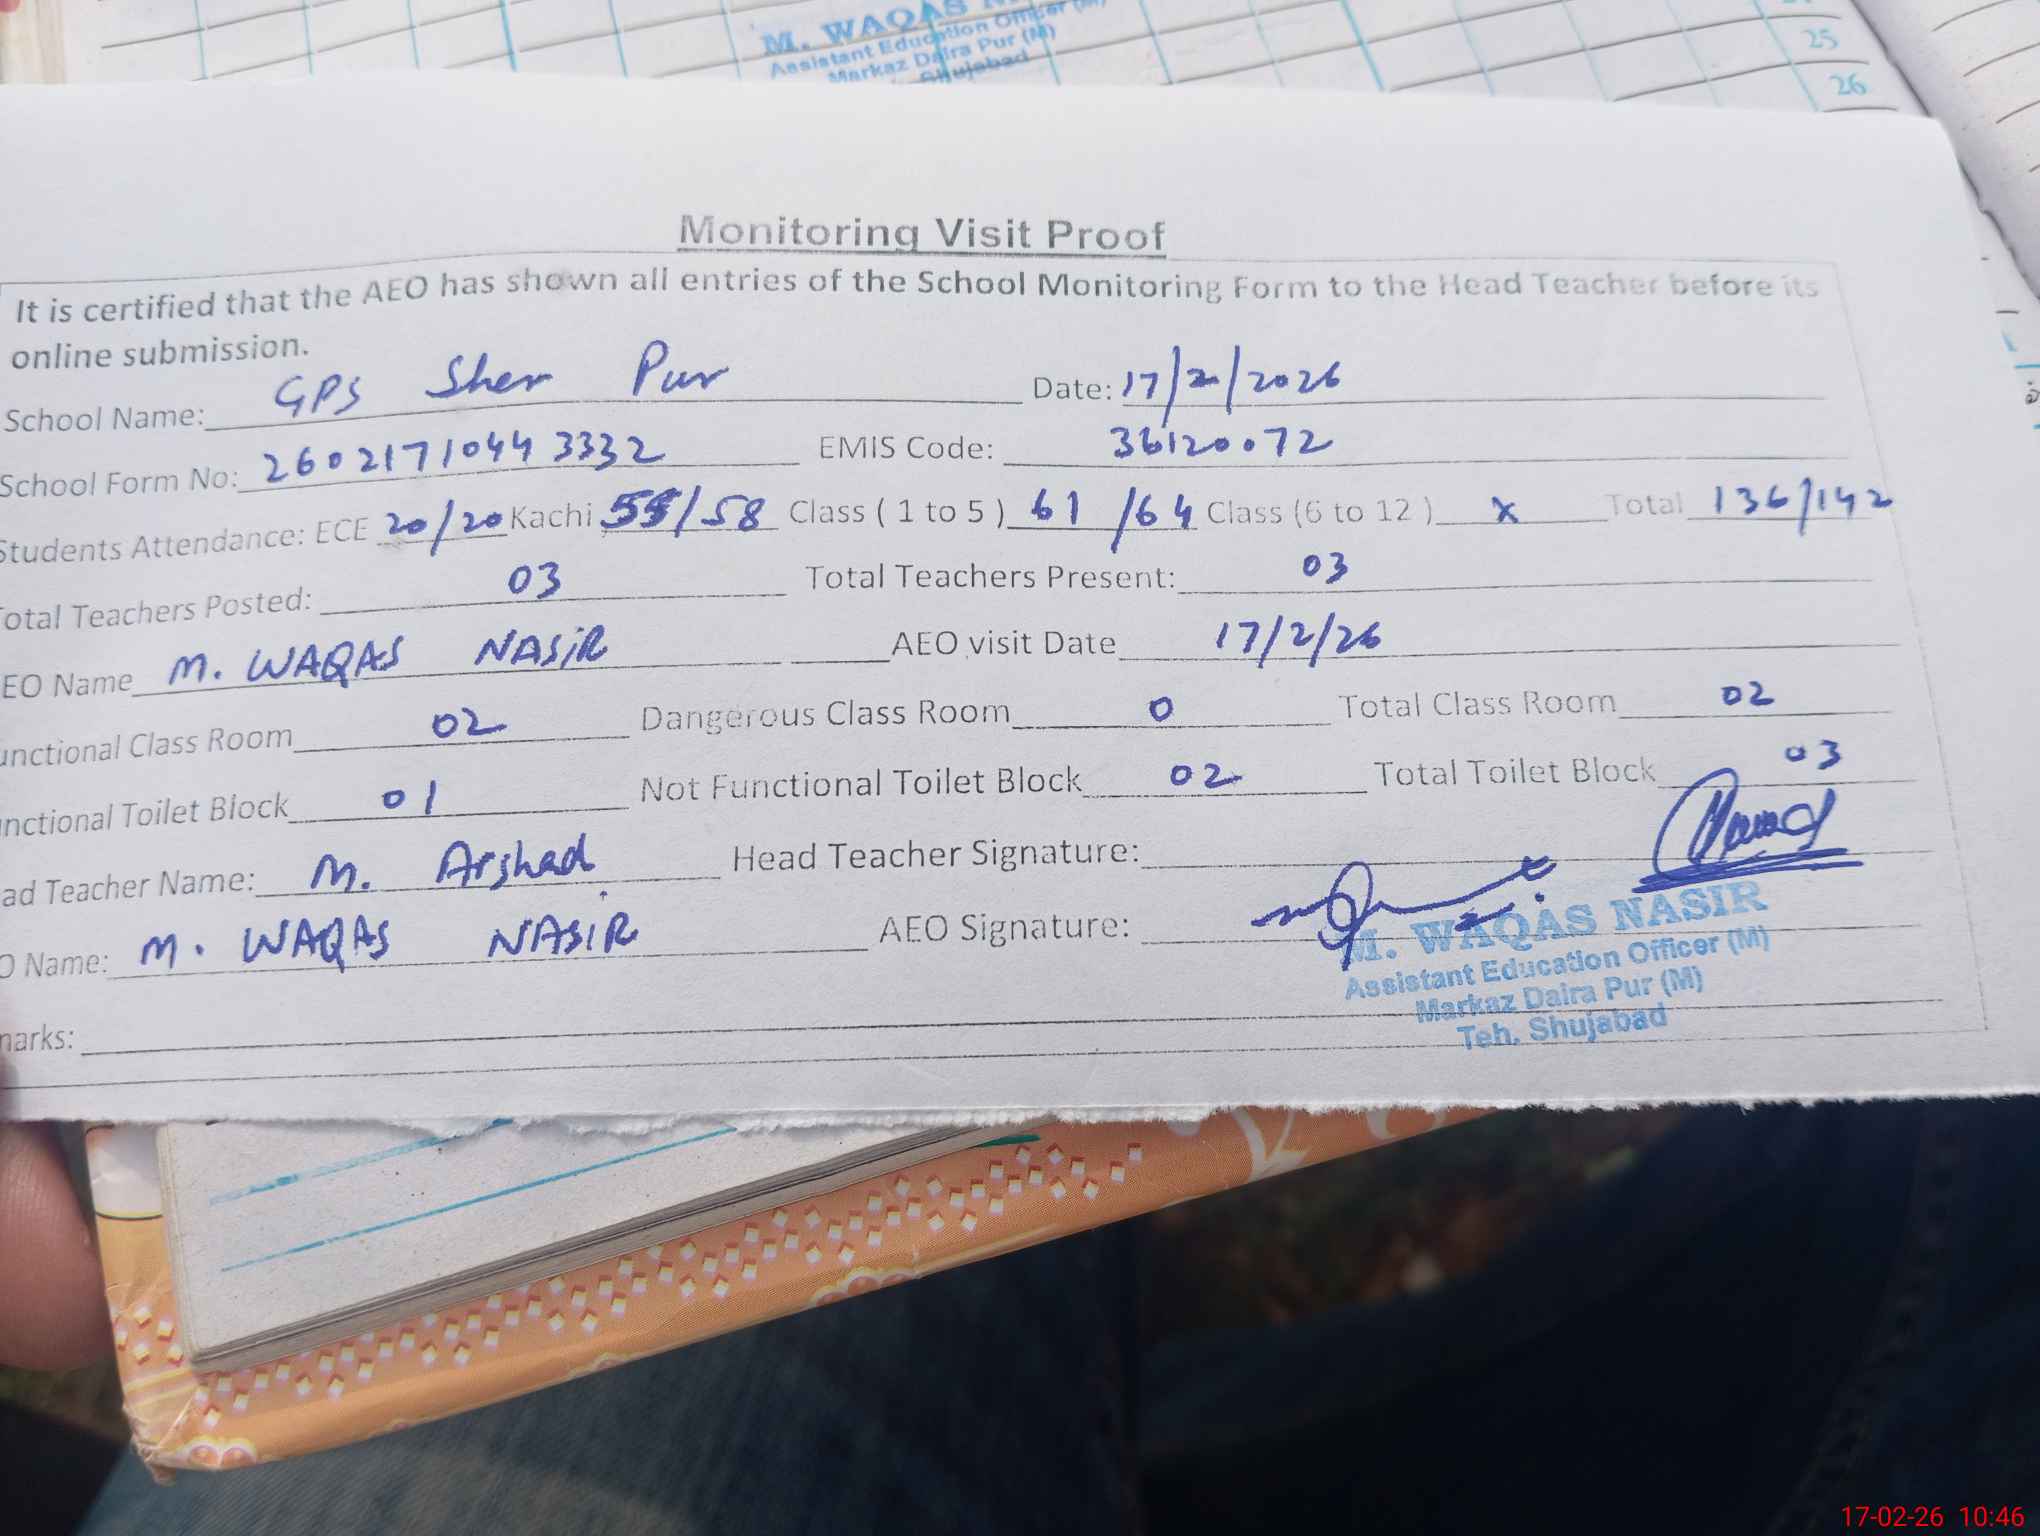 M. WAQAS
Assistant Education Officer (M)
Markaz Daira Pur (M)
Shujabad
25
26
Monitoring Visit Proof
It is certified that the AEO has shown all entries of the School Monitoring Form to the Head Teacher before its
online submission.
School Name: GPS Sher Pur Date: 17/2/2026
School Form No: 2602171044 3332 EMIS Code: 36120072
Students Attendance: ECE 20/20 Kachi 55/58 Class ( 1 to 5 ) 61 /64 Class (6 to 12 ) x Total 136/142
Total Teachers Posted: 03 Total Teachers Present: 03
EO Name M. WAQAS NASIR AEO visit Date 17/2/26
unctional Class Room 02 Dangerous Class Room 0 Total Class Room 02
nctional Toilet Block 01 Not Functional Toilet Block 02 Total Toilet Block 03
ad Teacher Name: M. Arshad Head Teacher Signature:
O Name: M. WAQAS NASIR AEO Signature:
M. WAQAS NASIR
Assistant Education Officer (M)
Markaz Daira Pur (M)
Teh. Shujabad
marks:
17-02-26 10:46